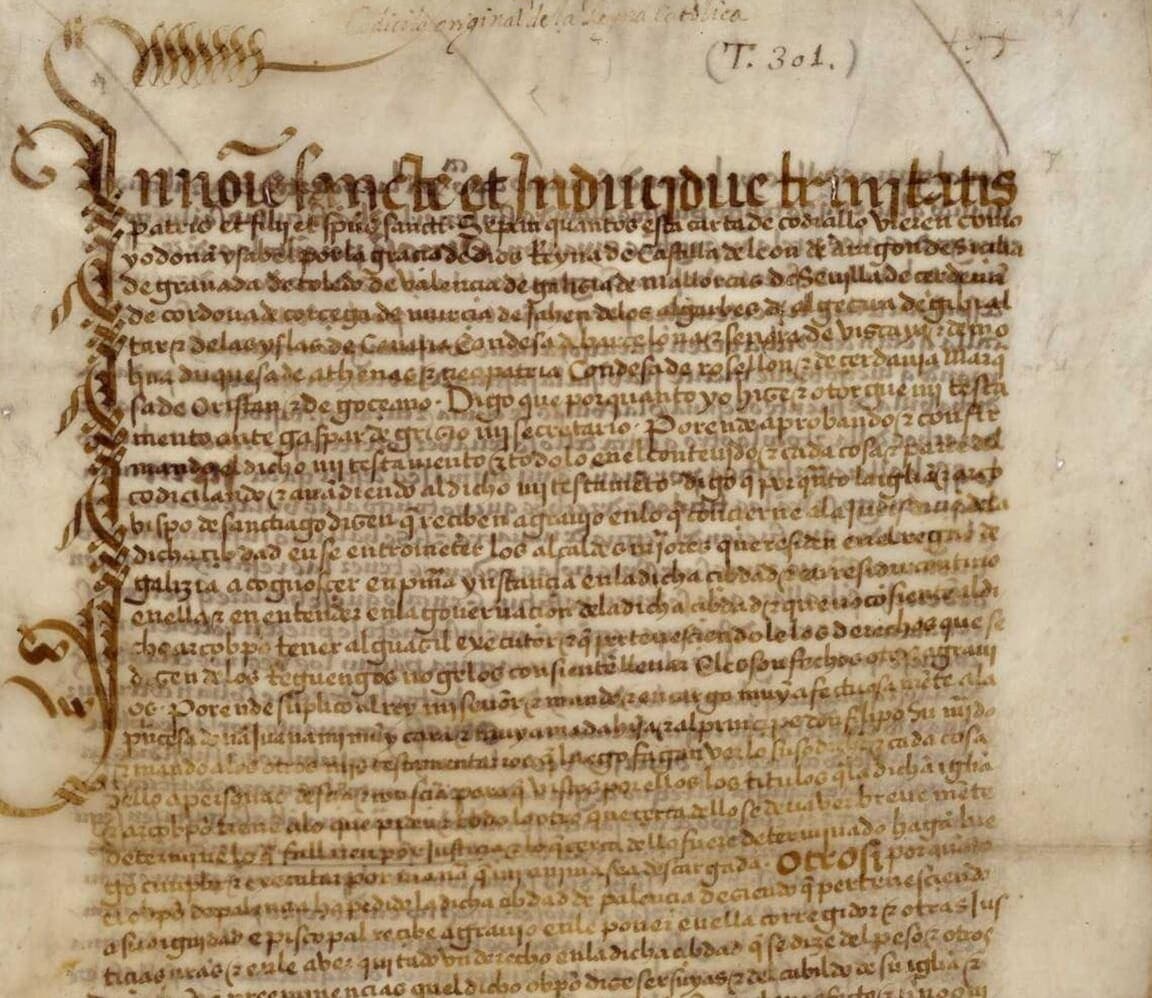 Codicilo original de la Reyna Catolica
(T. 301.)
In noīe sancte et Indiuidue trinitatis
patris et filij et spūs sancti. Sepan quantos esta carta de codicillo vieren como
yo doña ysabel por la gracia de dios Reyna de Castilla de leon de Aragon de Sicilia
de granada de toledo de valencia de galizia de mallorcas de Seuilla de cerdeña
de cordoua de corcega de murcia de Jahen delos algarbes de algezira de gibral
tar ⁊ delas yslas de Canaria Condesa de barcelona ⁊ señora de viscaya ⁊ de mo
lina duquesa de athenas ⁊ neopatria Condesa de rosellon ⁊ de cerdania marq̄
sa de Oristan ⁊ de goceano. Digo que por quanto yo hize ⁊ otorgue mi testa
mento ante gaspar de grizio mi secretario. Por ende aprobando ⁊ confir
mando el dicho mi testamento ⁊ todo lo enel contenido ⁊ cada cosa ⁊ parte del
codicilando ⁊ añadiendo al dicho mi testamēto digo q̄ por qn̄to la iglīa ⁊ arço
bispo de sanctiago dizen q̄ reciben agrauio en lo q̄ concierne ala Jurisdiciō dela
dicha cibdad en se entrometer los alcaldes mayores que residen enel regno de
galizia a cognoscer en pm̄a ynstancia enla dicha cibdad ⁊ en residir contino
enella ⁊ en entender enla gouernacion dela dicha cibdad ⁊ que no cōsienten al di
cho arcobpō tener alguazil executor ⁊ q̄ pertenesciendole los derechos que se
dizen delos Reguengos no gelos consienten lleuar ⁊ les son fechos otros agraui
os. Por ende suplico al rey mi señor ⁊ mando ⁊ encargo muy afectuosamēte ala
prīcesa doña Juana mi muy cara ⁊ muy amada hija ⁊ al principe don filipo su mārido
⁊ mando alos otros mis testamentarios q̄ luego fagan ver lo susodicho ⁊ cada cosa
dello a personas de sciā ⁊ consciā para q̄ vistos por ellos los titulos q̄ la dicha iglīa
⁊ arcobpō tiene alo que piden ⁊ todo lo otro que cerca dello se deua ver breue mēte
determinē lo q̄ fallaren por Justicia ⁊ lo q̄ cerca dello fuere determinado hagā lue
go cunplir ⁊ executar por manera q̄ mi anima sea descargada. Otrosi por quāto
el obpō de palencia ha pedido la dicha cibdad de palencia deziendo q̄ pertenesciendo
a su dignidad episcopal recibe agrauio enle poner enella corregidor ⁊ otras Jus
ticias nrās ⁊ enle aver quitado vn derecho enla dicha cibdad q̄ se dize del peso ⁊ otros
preeminencias quel dicho obpō dize ser suyas ⁊ del cabildo de su iglīa ⁊